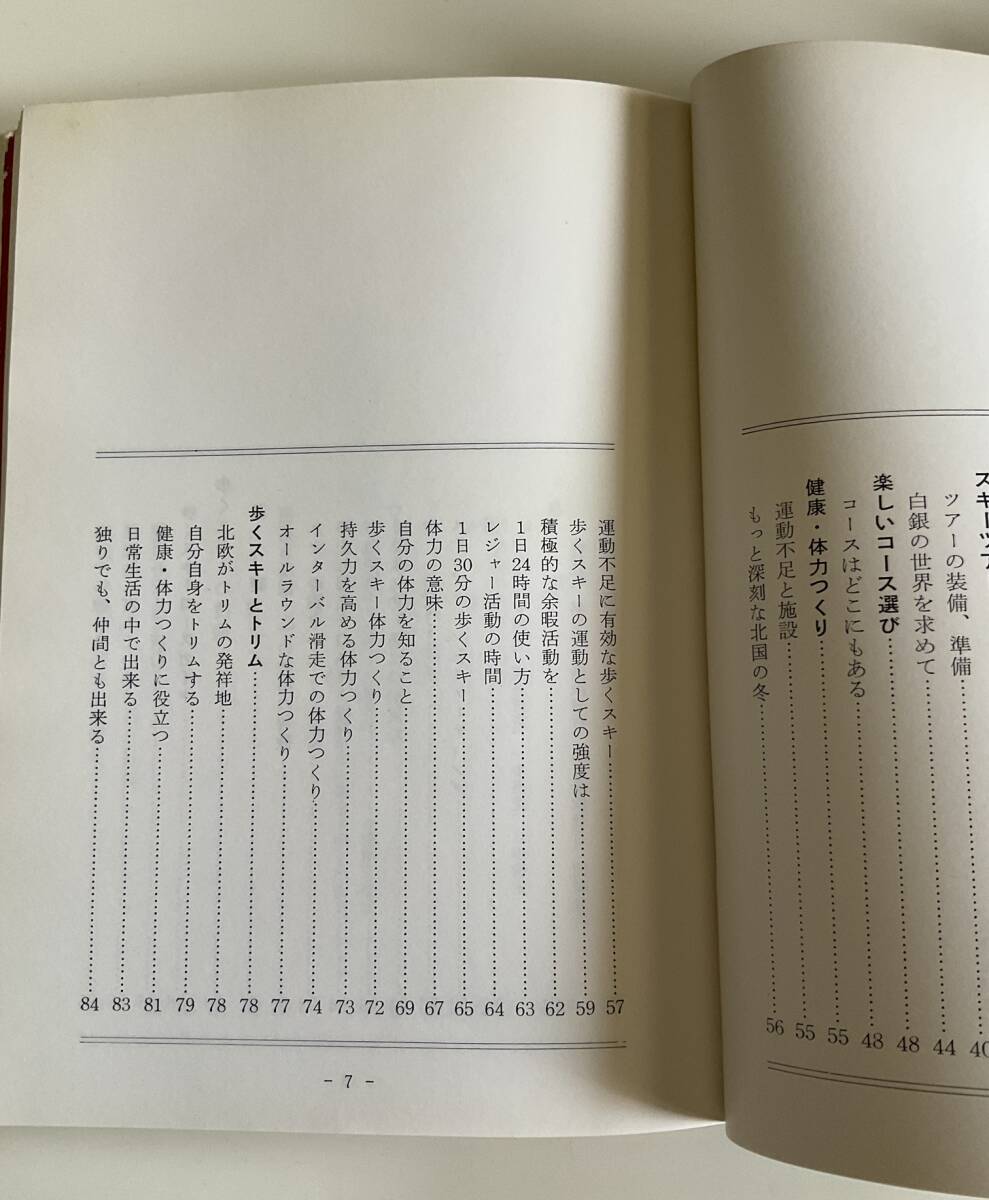 スキーツア
ツアーの装備、準備……40
白銀の世界を求めて……44
楽しいコース選び……48
コースはどこにもある……43
健康・体力つくり……55
運動不足と施設……55
もっと深刻な北国の冬……56
運動不足に有効な歩くスキー……57
歩くスキーの運動としての強度は……59
積極的な余暇活動を……62
1日24時間の使い方……63
レジャー活動の時間……64
1日30分の歩くスキー……65
体力の意味……67
自分の体力を知ること……69
歩くスキー体力つくり……72
持久力を高める体力つくり……73
インターバル滑走での体力つくり……74
オールラウンドな体力つくり……77
歩くスキーとトリム……78
北欧がトリムの発祥地……78
自分自身をトリムする……79
健康・体力つくりに役立つ……81
日常生活の中で出来る……83
独りでも、仲間とも出来る……84
- 7 -